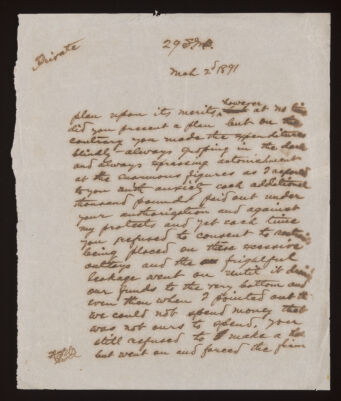 Private
293
Mch 2d 1891
plan upon its merits, however at no time
did you present a plan but on the
contrary you made the expenditures
blindly always groping in the dark
and always expressing astonishment
at the enormous figures as I reported
to you with anxiety each additional
thousand pounds paid out under
your authorization and against
my protests and yet each time
you refused to consent to
being placed on these excessive
outlays and the frightful
leakage went on until it
our funds to the very bottom and
even then when I pointed out that
we could not spend money that
was not ours to spend, you
still refused to make a
but went on and forced the firm